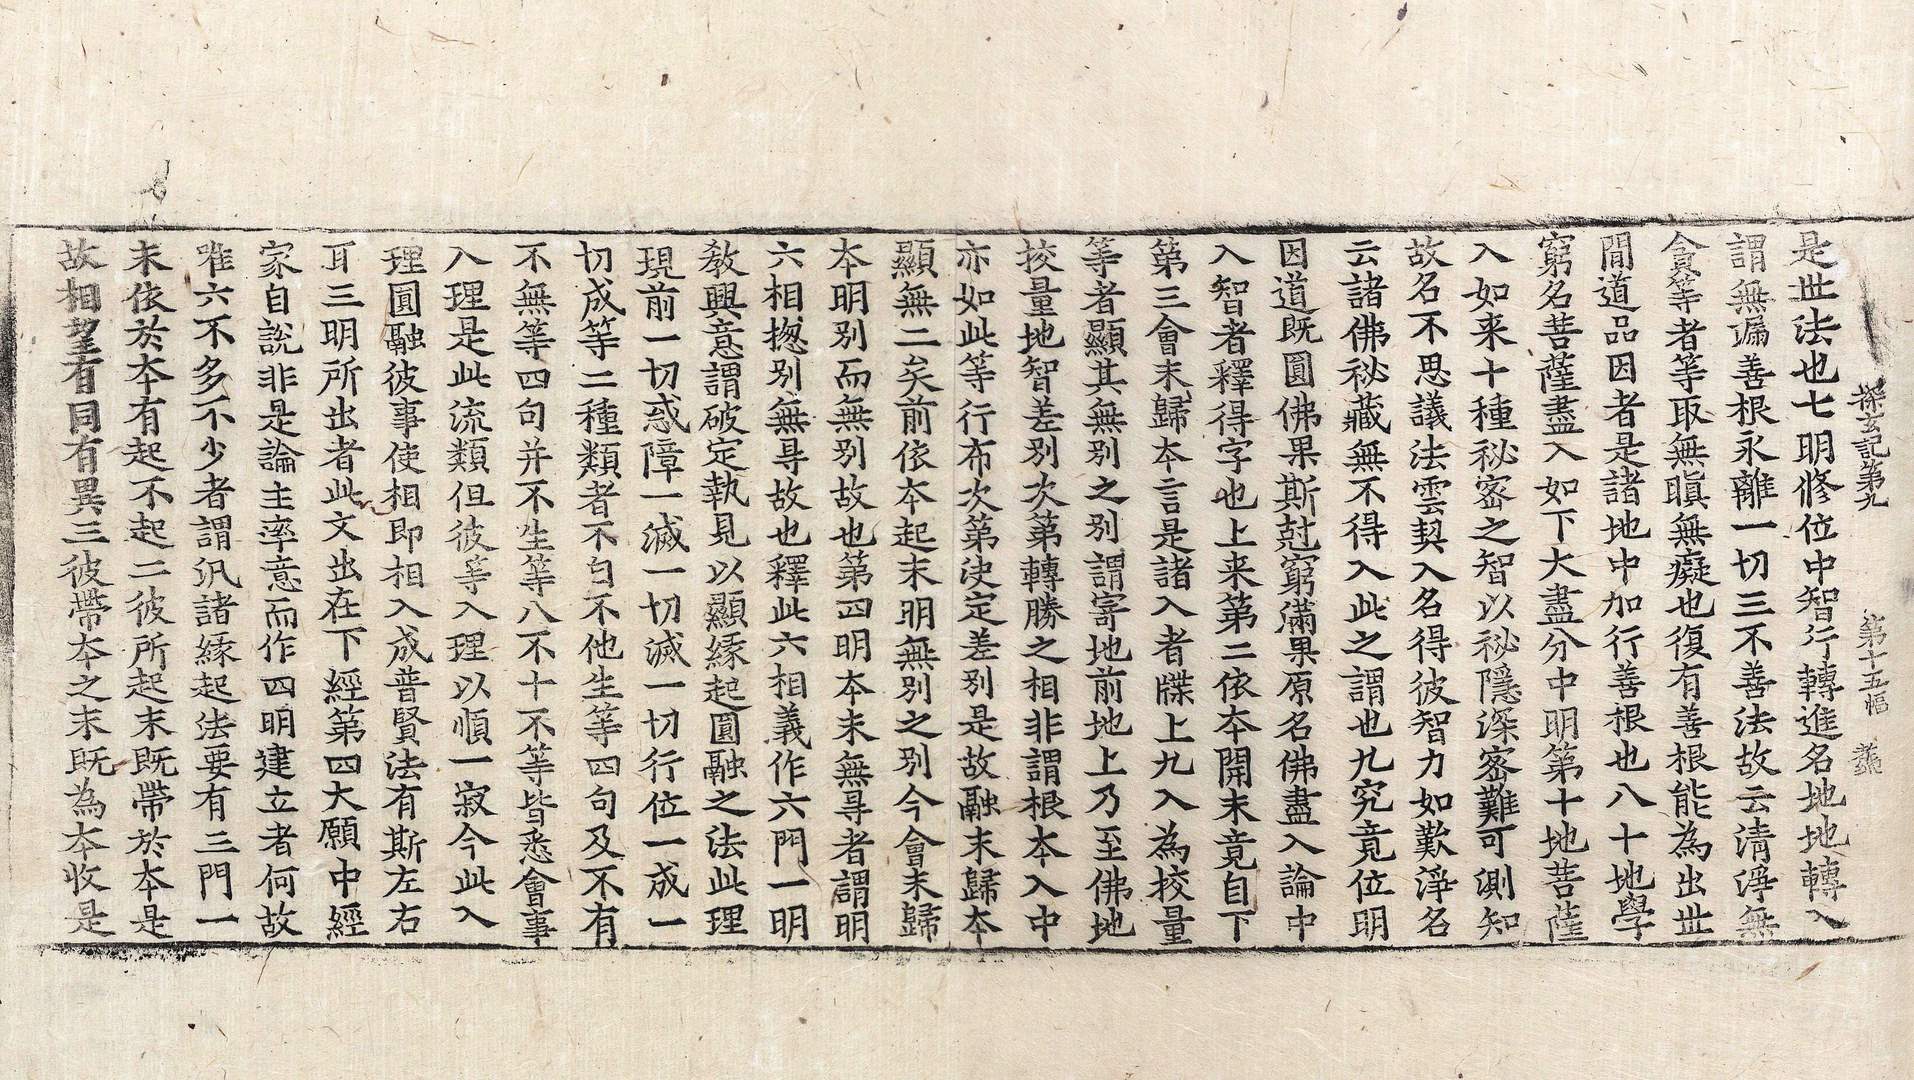 探玄記第九　第十五幅
是世法也七明修位中智行轉進名地地轉入
謂無漏善根永離一切三不善法故云清淨無
貪等者等取無瞋無癡也復有善根能為出世
間道品因者是諸地中加行善根也八十地學
窮名菩薩盡入如下大盡分中明第十地菩薩
入如来十種秘密之智以秘隱深密難可測知
故名不思議法雲契入名得彼智力如歎淨名
云諸佛祕蔵無不得入此之謂也九究竟位明
因道既圓佛果斯尅窮滿果原名佛盡入論中
入智者釋得字也上来第二依本開末竟自下
第三會末歸本言是諸入者牒上九入為挍量
等者顯其無別之別謂寄地前地上乃至佛地
挍量地智差别次第轉勝之相非謂根本入中
亦如此等行布次第决定差别是故融末歸本
顯無二矣前依本起末明無別之别今會末歸
本明別而無別故也第四明本末無㝵者謂明
六相揔别無㝵故也釋此六相義作六門一明
教興意謂破定執見以顯緣起圓融之法此理
現前一切惑障一滅一切滅一切行位一成一
切成等二種類者不自不他生等四句及不有
不無等四句并不生等八不十不等皆悉會事
入理是此流類但彼等入理以順一寂今此入
理圓融彼事使相即相入成普賢法有斯左右
耳三明所出者此文出在下經第四大願中經
家自說非是論主率意而作四明建立者何故
唯六不多不少者謂汎諸緣起法要有三門一
末依於本有起不起二彼所起末既帶於本是
故相望有同有異三彼帶本之末既為本收是